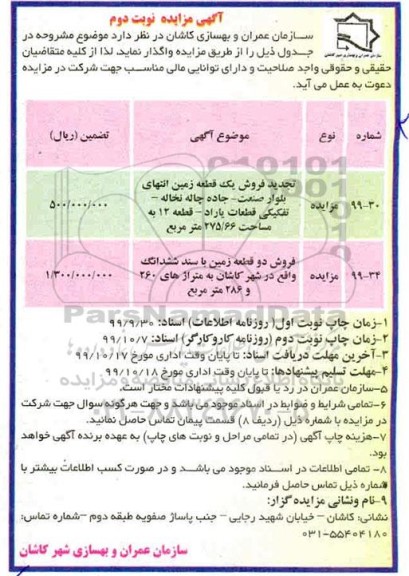 آگهی مزایده نوبت دوم
سازمان عمران و بهسازی کاشان در نظر دارد موضوع مشروحه در
جدول ذیل را از طریق مزایده واگذار نماید. لذا از کلیه متقاضیان
حقیقی و حقوقی واجد صلاحیت و دارای توانایی مالی مناسب جهت شرکت در مزایده
دعوت به عمل می آید.
شماره نوع موضوع آگهی تضمین (ریال)
۹۹-۳۰ مزایده تجدید فروش یک قطعه زمین انتهای
بلوار صنعت- جاده چاله نخاله -
تفکیکی قطعات یاراد - قطعه ۱۲ به
مساحت ۲۷۵/۶۶ متر مربع ۵۰۰/۰۰۰/۰۰۰
۹۹-۳۴ مزایده فروش دو قطعه زمین با سند ششدانگ
واقع در شهر کاشان به متراژ های ۲۶۰
و ۲۸۶ متر مربع ۱/۳۰۰/۰۰۰/۰۰۰
ParsNamadData
۱-زمان چاپ نوبت اول( روزنامه اطلاعات) اسناد: ۹۹/۹/۳۰
۲-زمان چاپ نوبت دوم (روزنامه کاروکارگر) اسناد: ۹۹/۱۰/۷
۳-آخرین مهلت دریافت اسناد: تا پایان وقت اداری مورخ ۹۹/۱۰/۱۷
۴-مهلت تسلیم پیشنهادها: تا پایان وقت اداری مورخ ۹۹/۱۰/۱۸
۵-سازمان عمران در رد یا قبول کلیه پیشنهادات مختار است.
۶-تمامی شرایط و ضوابط در اسناد موجود می باشد و جهت هرگونه سوال جهت شرکت
در مزایده با شماره ذیل (ردیف ۸) قسمت پیمان تماس حاصل نمائید.
۷-هزینه چاپ آگهی (در تمامی مراحل و نوبت های چاپ) به عهده برنده آگهی خواهد
بود.
۸- تمامی اطلاعات در اسناد موجود می باشد و در صورت کسب اطلاعات بیشتر با
شماره ذیل تماس حاصل فرمائید.
۹-نام ونشانی مزایده گزار:
نشانی: کاشان – خیابان شهید رجایی – جنب پاساژ صفویه طبقه دوم –شماره تماس:
۰۳۱-۵۵۴۰۴۱۸۰
سازمان عمران و بهسازی شهر کاشان